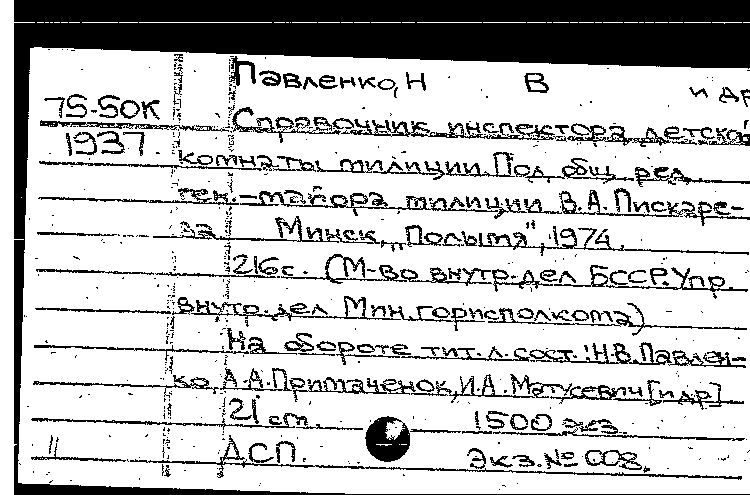 Павленко, Н В и др
75-50к
Справочник инспектора детской
1937.
комнаты милиции. Под общ. ред.
ген.-майора милиции В.А. Пискаре-
ва Минск, "Полымя", 1974.
216с. (М-во внутр. дел БССР. Упр.
внутр. дел Мин. горисполкома)
На обороте тит. л. сост.: Н.В. Павлен-
ко, А.А. Примаченок, И.А. Матусевич [и др]
21 см. 1500 экз.
11 ДСП. Экз. № 008.